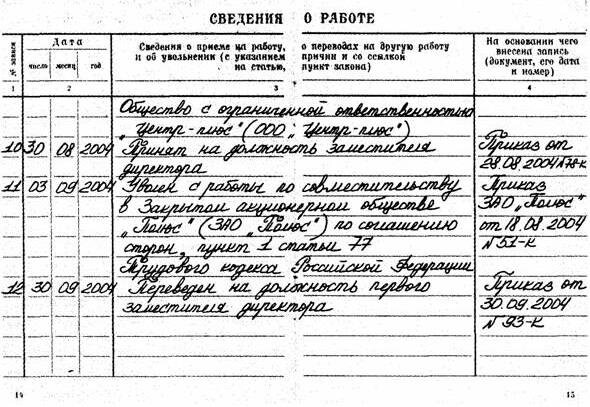 СВЕДЕНИЯ О РАБОТЕ
№ записи
Дата
число месяц год
Сведения о приеме на работу, о переводах на другую работу
и об увольнении (с указанием причин и со ссылкой
на статью, пункт закона)
На основании чего
внесена запись
(документ, его дата
и номер)
1 2 3 4
Общество с ограниченной ответственностью
„Центр-плюс" (ООО „Центр-плюс")
10 30 08 2004 Принят на должность заместителя
директора
Приказ от
28.08.2004 178-к
11 03 09 2004 Уволен с работы по совместительству
в Закрытом акционерном обществе
„Полюс" (ЗАО „Полюс") по соглашению
сторон, пункт 1 статьи 77
Трудового кодекса Российской Федерации
Приказ
ЗАО „Полюс"
от 18.08.2004
N 51-к
12 30 09 2004 Переведен на должность первого
заместителя директора
Приказ от
30.09.2004
N 93-к
14 15